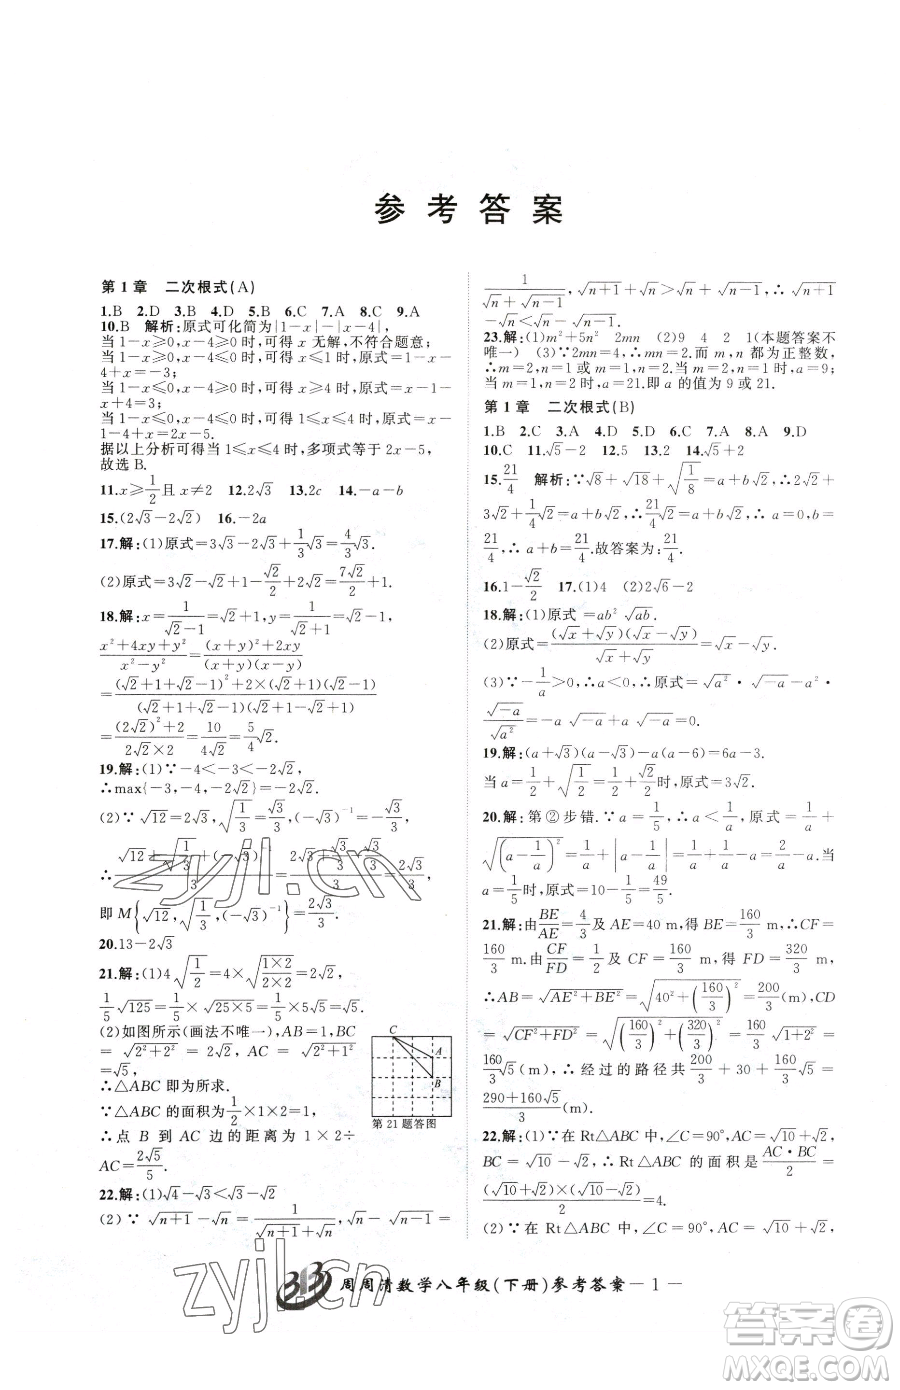 参考答案
第1章 二次根式(A)
1.B 2.D 3.B 4.D 5.B 6.C 7.A 8.C 9.A
10.B 解析:原式可化简为|1-x|-|x-4|,
当 1-x≥0,x-4≥0 时,可得 x 无解,不符合题意;
当 1-x≥0,x-4≤0 时,可得 x≤1 时,原式=1-x-
4+x=-3;
当 1-x≤0,x-4≥0 时,可得 x≥4 时,原式=x-1-
x+4=3;
当 1-x≤0,x-4≤0 时,可得 1≤x≤4 时,原式=x-
1-4+x=2x-5.
据以上分析可得当 1≤x≤4 时,多项式等于 2x-5,
故选 B.
11.x≥1/2且 x≠2 12.2√3 13.2c 14.-a-b
15.(2√3-2√2) 16.-2a
17.解:(1)原式=3√3-2√3+1/3√3=4/3√3.
(2)原式=3√2-2√2+1-√2/2+2√2=7√2/2+1.
18.解:x=1/(√2-1)=√2+1,y=1/(√2+1)=√2-1,
(x²+4xy+y²)/(x²-y²)=((x+y)²+2xy)/((x+y)(x-y))
=((√2+1+√2-1)²+2×(√2+1)(√2-1))/((√2+1+√2-1)(√2+1-√2+1))
=((2√2)²+2)/(2√2×2)=10/(4√2)=5/4√2.
19.解:(1)∵-4<-3<-2√2,
∴max{-3,-4,-2√2}=-2√2.
(2)∵√12=2√3,√(1/3)=√3/3,(-√3)⁻¹=-√3/3,
∴(√12+√(1/3)-√3/3)/3=(2√3+√3/3-√3/3)/3=2√3/3,
即 M{√12,√(1/3),(-√3)⁻¹}=2√3/3.
20.13-2√3
21.解:(1)4√(1/2)=4×√((1×2)/(2×2))=2√2,
1/5√125=1/5×√(25×5)=1/5×5×√5=√5.
(2)如图所示(画法不唯一),AB=1,BC
=√(2²+2²)=2√2,AC=√(2²+1²)=√5,
∴△ABC 即为所求.
∵△ABC 的面积为1/2×1×2=1,
∴点 B 到 AC 边的距离为 1×2÷
AC=2√5/5.
C
A
B
第21题答图
22.解:(1)√4-√3<√3-√2
(2)∵√(n+1)-√n=1/(√(n+1)+√n),√n-√(n-1)=
1/(√n+√(n-1)),√(n+1)+√n>√n+√(n-1),∴√(n+1)
-√n<√n-√(n-1).
23.解:(1)m²+5n² 2mn (2)9 4 2 1(本题答案不
唯一) (3)∵2mn=4,∴mn=2.而 m,n 都为正整数,
∴m=2,n=1或 m=1,n=2.当 m=2,n=1时,a=9;
当 m=1,n=2时,a=21.即 a 的值为 9 或 21.
第1章 二次根式(B)
1.B 2.C 3.A 4.B 5.D 6.C 7.A 8.A 9.D
10.C 11.√5-2 12.5 13.2 14.√5+2
15.21/4 解析:∵√8+√18+√(1/8)=a+b√2,∴2√2+
3√2+1/4√2=a+b√2,∴21/4√2=a+b√2,∴a=0,b=
21/4,∴a+b=21/4.故答案为:21/4.
16.1-√2/2 17.(1)4 (2)2√6-2
18.解:(1)原式=ab²√ab.
(2)原式=((√x+√y)(√x-√y))/(√x+√y)=√x-√y.
(3)∵-1/a>0,∴a<0,原式=√a²·√-a-a²·
√-a/√a²=-a√-a+a√-a=0.
19.解:(a+√3)(a-√3)-a(a-6)=6a-3.
当a=1/2+√(1/2)=1/2+√2/2时,原式=3√2.
20.解:第②步错.∵a=1/5,∴a<1/a,原式=1/a+
√((a-1/a)²)=1/a+|a-1/a|=1/a+1/a-a=2/a-a.当
a=1/5时,原式=10-1/5=49/5.
21.解:由BE/AE=4/3及 AE=40 m,得 BE=160/3,∴CF=
160/3 m.由CF/FD=1/2及 CF=160/3 m,得 FD=320/3 m,
∴AB=√(AE²+BE²)=√(40²+(160/3)²)=200/3(m),CD
=√(CF²+FD²)=√((160/3)²+(320/3)²)=160/3√(1+2²)=
160/3√5(m),∴经过的路径共200/3+30+160/3√5=
(290+160√5)/3(m).
22.解:(1)∵在 Rt△ABC 中,∠C=90°,AC=√10+√2,
BC=√10-√2,∴Rt△ABC 的面积=AC·BC/2=
((√10+√2)×(√10-√2))/2=4.
(2)∵在 Rt△ABC 中,∠C=90°,AC=√10+√2,
周周清数学八年级(下册)参考答案—1—
zyjl.cn
zyjl.cn
答案圈
MXQE.COM